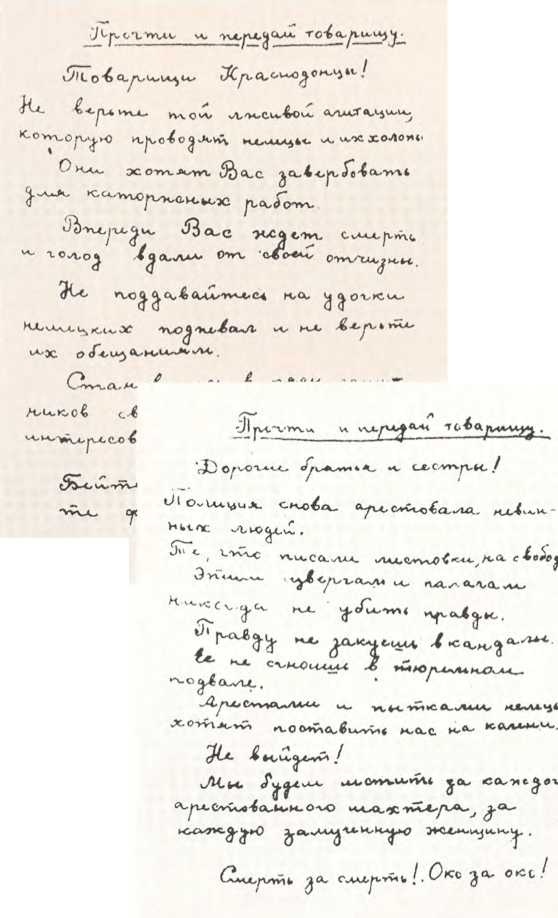 Прочти и передай товарищу.
Товарищи Краснодонцы!
Не верьте той лживой агитации,
которую проводят немцы и их холопы
Они хотят Вас завербовать
для каторжных работ.
Впереди Вас ждет смерть
и голод вдали от своей отчизны.
Не поддавайтесь на удочки
немецких подпевал и не верьте
их обещаниям.
Стан
ников св
интересов
Бейт
те ф
Прочти и передай товарищу.
Дорогие братья и сестры!
Полиция снова арестовала невин-
ных людей.
Те, что писали листовки, на свобод
Этим цвергам и палачам
никогда не убить правды.
Правду не закуешь в кандалы.
Ее не сгноишь в тюремном
подвале.
Арестами и пытками немцы
хотят поставить нас на колени.
Не выйдет!
Мы будем мстить за каждог
арестованного шахтера, за
каждую замученную женщину.
Смерть за смерть! Око за око!